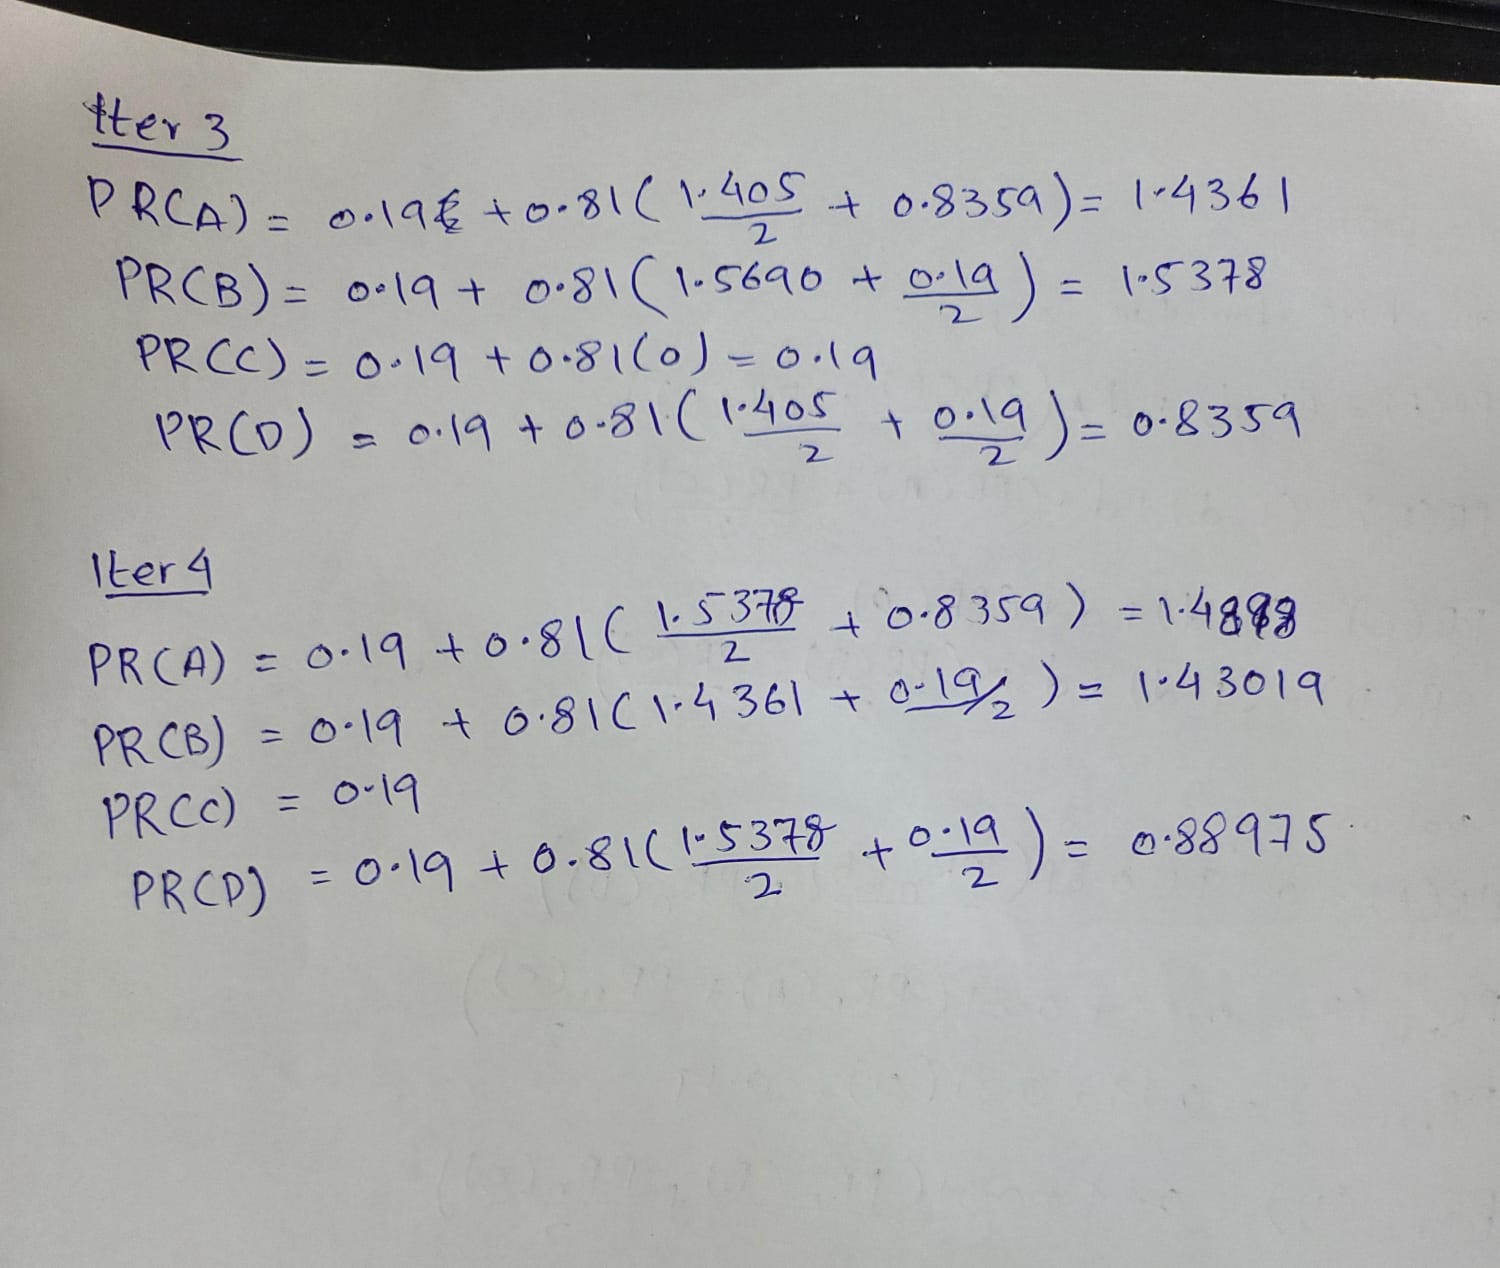 Iter 3
PR(A) = 0.19 + 0.81( 1.405/2 + 0.8359) = 1.4361
PR(B) = 0.19 + 0.81( 1.5690 + 0.19/2 ) = 1.5378
PR(C) = 0.19 + 0.81(0) = 0.19
PR(D) = 0.19 + 0.81( 1.405/2 + 0.19/2 ) = 0.8359
Iter 4
PR(A) = 0.19 + 0.81( 1.5378/2 + 0.8359 ) =
PR(B) = 0.19 + 0.81( 1.4361 + 0.19/2 ) = 1.43019
PR(C) = 0.19
PR(D) = 0.19 + 0.81( 1.5378/2 + 0.19/2 ) = 0.88975